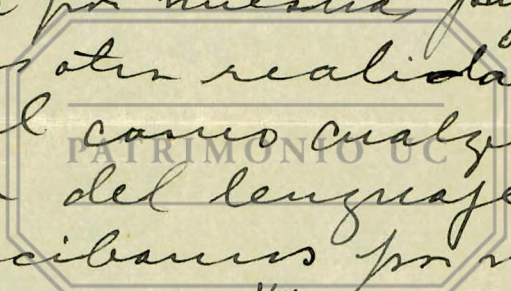 por nuestra
otra realida
l como cualqu
PATRIMONIO UC
del lenguaje
cibamos por n